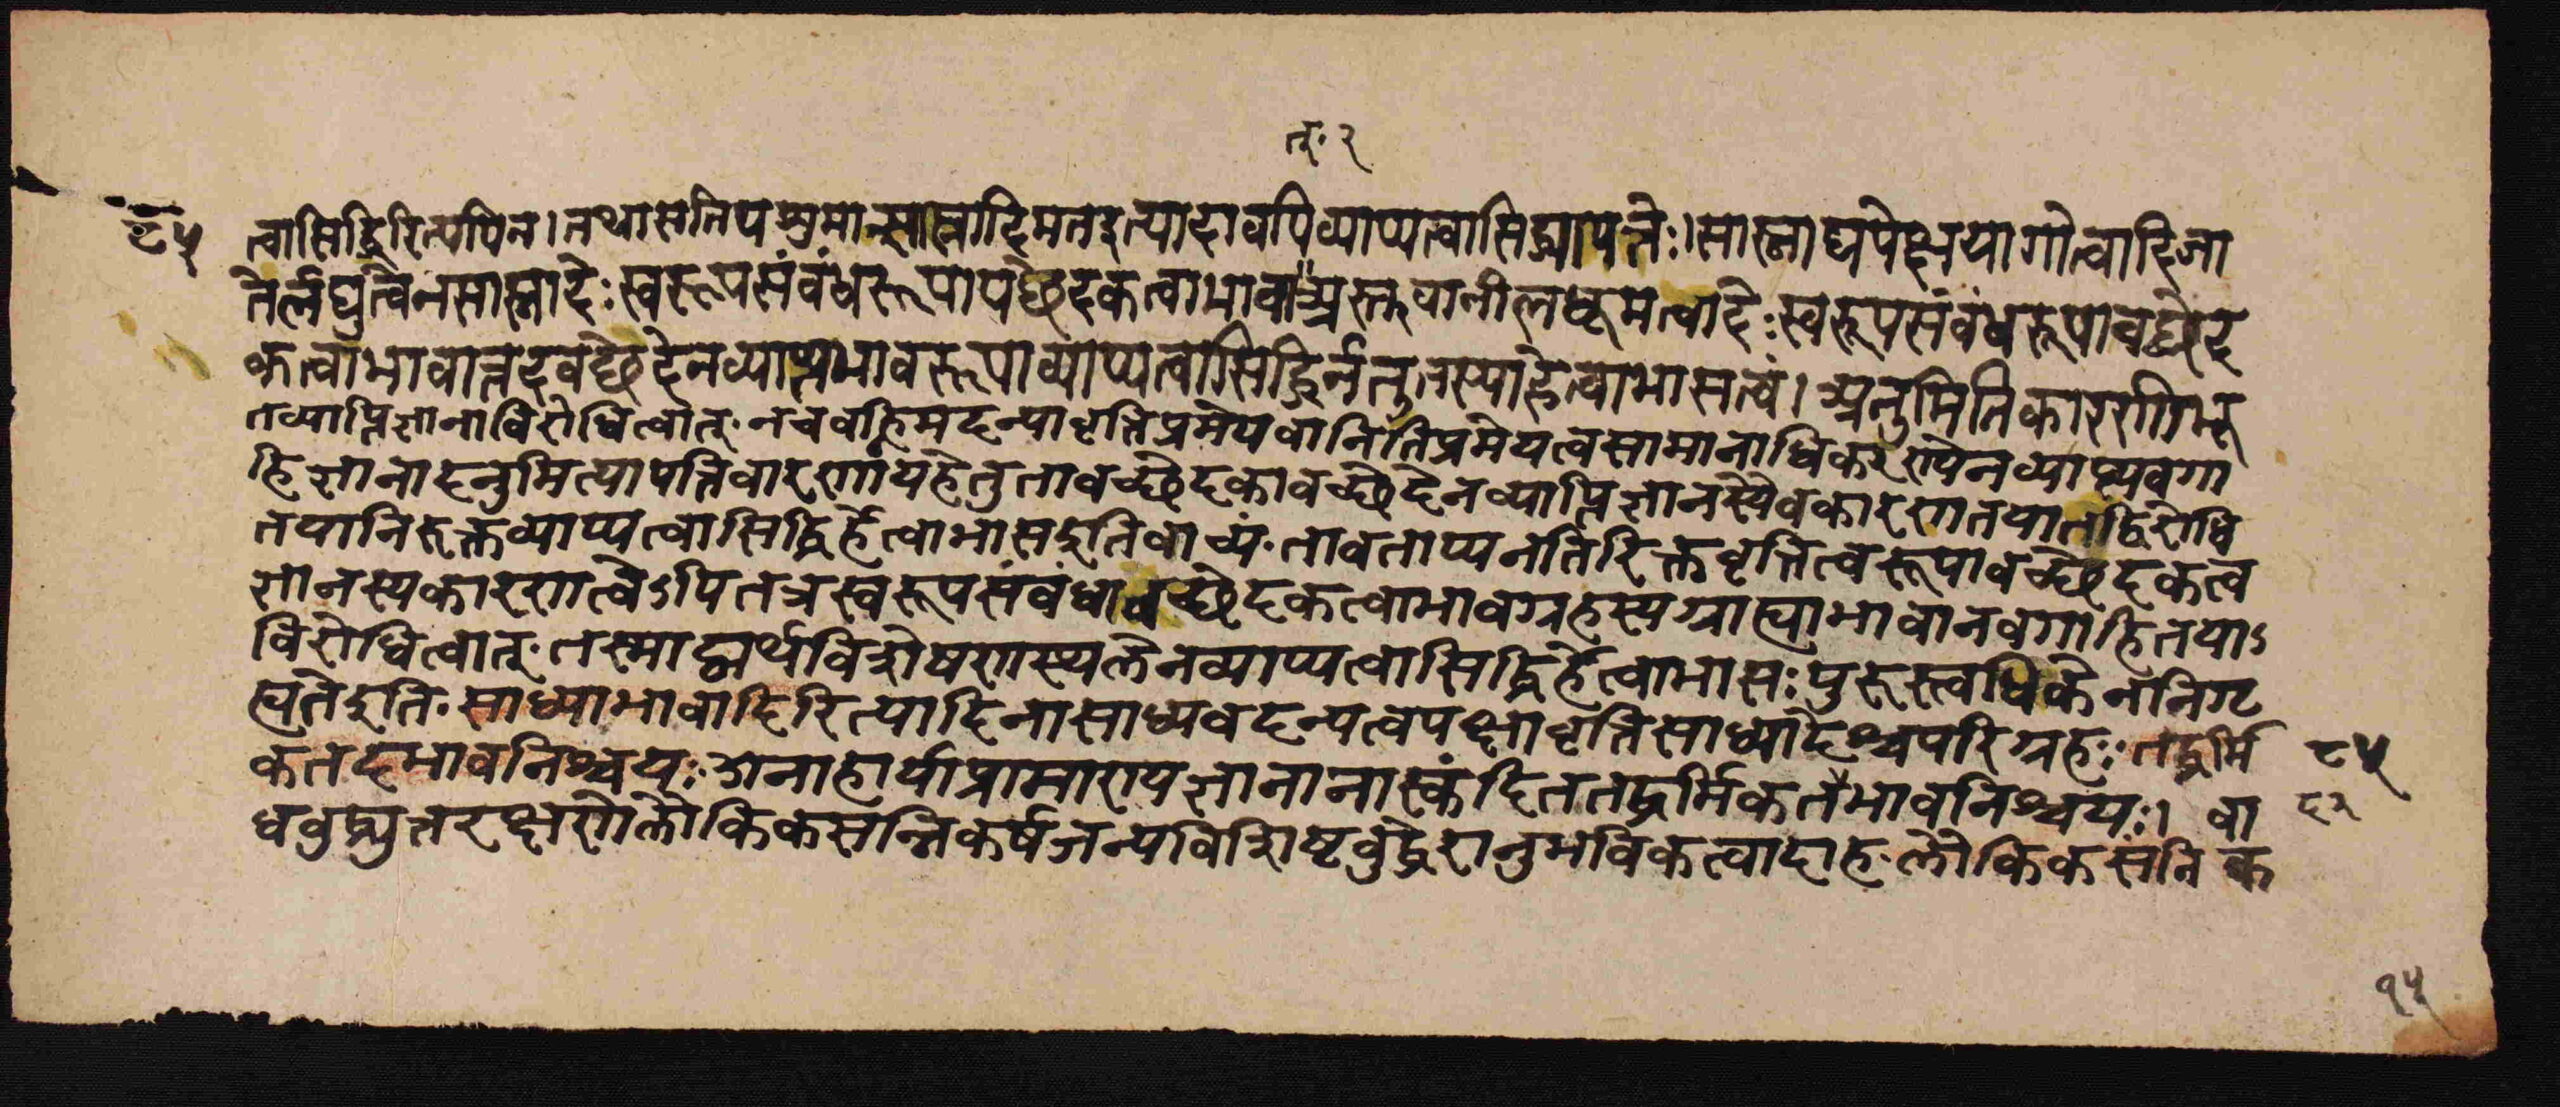 त. २
८५ त्वासिद्धिरित्यपि न। तथा सति पशुमान्सास्नादिमत इत्यादावपि व्याप्यत्वासिद्ध्यापत्तेः। सास्नाद्यपेक्षया गोत्वादिजा
तेर्लघुत्वेन सास्नादेः स्वरूपसंवंधरूपापछेदकत्वाभावात् अस्तु वा नीलधूमत्वादेः स्वरूपसंवंधरूपावछेद
कत्वाभावात्तदवछेदेन व्याप्त्यभावरूपा व्याप्यत्वासिद्धिर्न तु तस्या हेत्वाभासत्वं। अनुमितिकारणीभू
तव्याप्तिज्ञानाविरोधित्वात्. न च वह्निमदन्यावृत्तिप्रमेयवानिति प्रमेयत्वसामानाधिकरण्येन व्याप्त्यवगा
हिज्ञानादनुमित्यापत्तिवारणाय हेतुतावच्छेदकावच्छेदेन व्याप्तिज्ञानस्यैव कारणतया तद्विरोधि
तया निरुक्तव्याप्यत्वासिद्धिर्हेत्वाभास इति वाच्यं. तावताप्यनतिरिक्तवृत्तित्वरूपावच्छेदकत्व
ज्ञानस्य कारणत्वेऽपि तत्र स्वरूपसंवंधावच्छेदकत्वाभावग्रहस्य ग्राह्याभावानवगाहितयाऽ
विरोधित्वात्. तस्माद्व्यर्थविशेषणस्थले न व्याप्यत्वासिद्धिर्हेत्वाभासः पुरूस्त्वधिकेन निगृ
ह्यते इति. साध्याभावादिरित्यादिना साध्यवदन्यत्वपक्षावृत्तिसाध्यादेश्च परिग्रहः तद्धर्मि ८५
कतदभावनिश्चयः अनाहार्याप्रामाण्यज्ञानानास्कंदिततद्धर्मिकतैभावनिश्चयः। वा
धवुद्ध्युत्तरक्षणे लौकिकसन्निकर्षजन्यविशिष्टवुद्धेरानुभविकत्वादाह. लौकिकसंनिक
१५